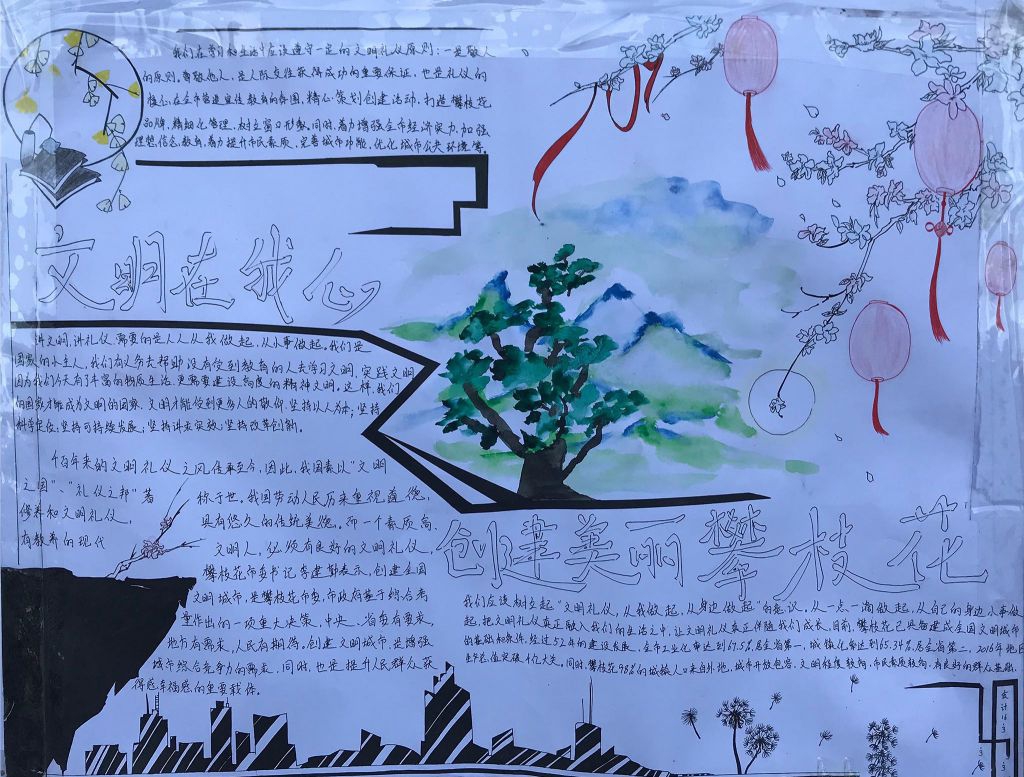 我们在学习和生活中应该遵守一定的文明礼仪原则：一是敬人
的原则。尊敬他人，是人际交往获得成功的重要保证，也是礼仪的
核心。在全市营造宣传教育的氛围，精心策划创建活动，打造攀枝花
品牌，精细化管理，树立窗口形象，同时，着力增强全市经济实力，加强
理想，信念，教育，着力提升市民素质，完善城市功能，优化城市公共环境等
文明在我心
讲文明，讲礼仪，需要的是人人从我做起，从小事做起。我们是
国家的小主人，我们有义务去帮助没有受到教育的人去学习文明，实践文明
因为我们今天有了丰富的物质生活，更需要建设高度的精神文明。这样，我们
的国家才能成为文明的国家，文明才能受到更多人的敬仰。坚持以人为本；坚持
科学定位；坚持可持续发展；坚持讲求实效；坚持改革创新。
千百年来的文明礼仪之风传承至今，因此，我国素以“文明
之国”、“礼仪之邦”著
称于世。我国劳动人民历来重视道德，
修养和文明礼仪，
具有悠久的传统美德。即一个素质高，
有教养的现代
文明人，必须有良好的文明礼仪，
攀枝花市委书记李建勤表示，创建全国
文明城市，是攀枝花市委，市政府基于综合考
量作出的一项重大决策，中央、省委有要求，
地方有需求，人民有期待。创建文明城市，是增强
城市综合竞争力的需求，同时，也是提升人民群众获
得感幸福感的重要载体。
创建美丽攀枝花
我们应该树立起“文明礼仪，从我做起，从身边做起”的意识。从一点一滴做起，从自己的身边小事做
起，把文明礼仪真正融入我们的生活之中，让文明礼仪真正伴随我们成长。目前，攀枝花已具备建成全国文明城市
的基础和条件，经过52年的建设发展，全市工业化率达到67.5%居全省第一，城镇化率达到65.34%居全省第二，2016年地区
生产总值突破千亿大关，同时，攀枝花98%的城镇人口来自外地，城市开放包容，文明程度较高，市民素质较高，有良好的群众基础。